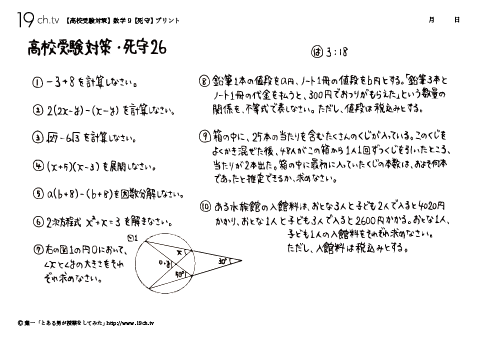 19ch.tv 【高校受験対策】数学9【死守】プリント 月 日
高校受験対策・死守26
㋩ 3:18
① -3+8を計算しなさい。
② 2(2x-y)-(x-y)を計算しなさい。
③ √27-6√3 を計算しなさい。
④ (x+5)(x-3)を展開しなさい。
⑤ a(b+8)-(b+8)を因数分解しなさい。
⑥ 2次方程式 x²+x=3を解きなさい。
⑦ 右の図1の円Oにおいて、
∠xと∠yの大きさをそれ
ぞれ求めなさい。
図1
x
O
y
40°
30°
⑧ 鉛筆1本の値段をa円、ノート1冊の値段をb円とする。「鉛筆3本と
ノート1冊の代金を払うと、300円でおつりがもらえた」という数量の
関係を、不等式で表しなさい。ただし、値段は税込みとする。
⑨ 箱の中に、25本の当たりを含むたくさんのくじが入っている。このくじを
よくかき混ぜた後、48人がこの箱から1人1回ずつくじを引いたところ、
当たりが2本出た。箱の中に最初に入っていたくじの本数は、およそ何本
であったと推定できるか、求めなさい。
⑩ ある水族館の入館料は、おとな3人と子ども2人で入ると4020円
かかり、おとな1人と子ども3人で入ると2600円かかる。おとな1人、
子ども1人の入館料をそれぞれ求めなさい。
ただし、入館料は税込みとする。
© 葉一 「とある男が授業をしてみた」http://www.19ch.tv